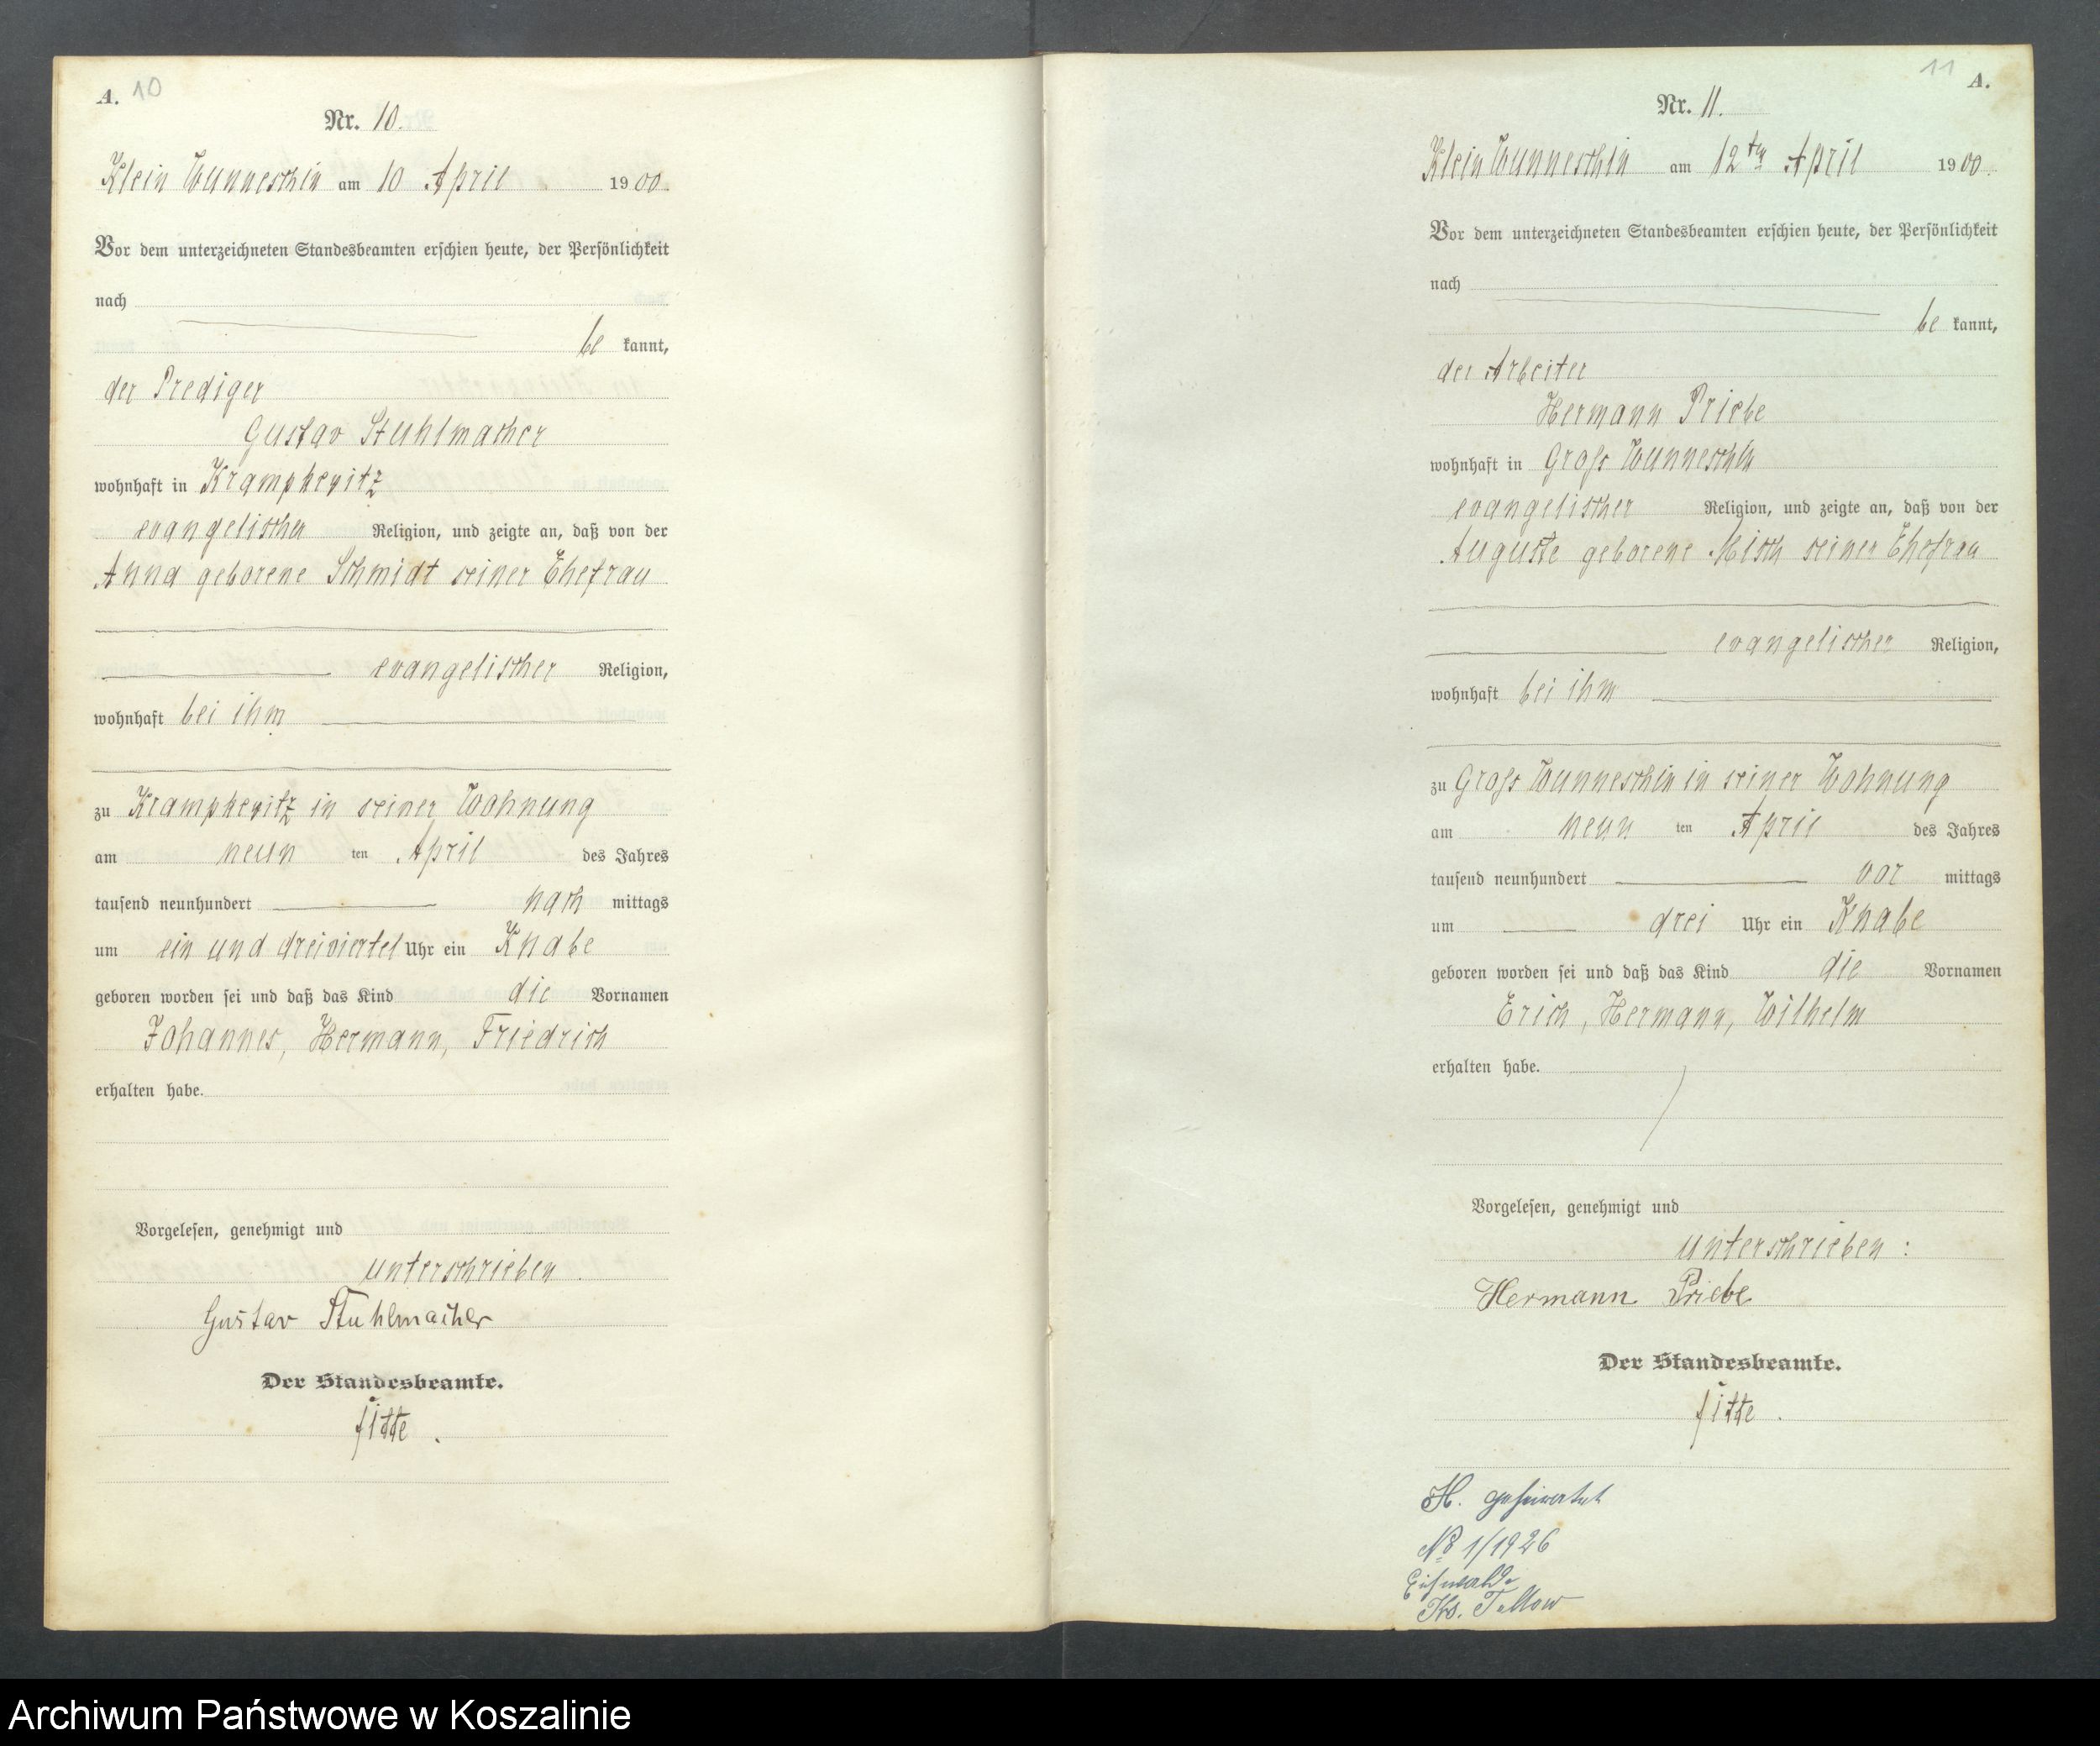 A. 10
Nr. 10.
Klein Wunneschin am 10 April 1900.
Vor dem unterzeichneten Standesbeamten erschien heute, der Persönlichkeit
nach
be kannt,
der Prediger
Gustav Stuhlmacher
wohnhaft in Krampkewitz
evangelischer Religion, und zeigte an, daß von der
Anna geborene Schmidt seiner Ehefrau
evangelischer Religion,
wohnhaft bei ihm
zu Krampkewitz in seiner Wohnung
am neun ten April des Jahres
tausend neunhundert nach mittags
um ein und dreiviertel Uhr ein Knabe
geboren worden sei und daß das Kind die Vornamen
Johannes, Hermann, Friedrich
erhalten habe.
Vorgelesen, genehmigt und
unterschrieben
Gustav Stuhlmacher
Der Standesbeamte.
11 A.
Nr. 11.
Klein Wunneschin am 12ten April 1900.
Vor dem unterzeichneten Standesbeamten erschien heute, der Persönlichkeit
nach
be kannt,
der Arbeiter
Hermann Priebe
wohnhaft in Groß Wunneschin
evangelischer Religion, und zeigte an, daß von der
Auguste geborene Misch seiner Ehefrau
evangelischer Religion,
wohnhaft bei ihm
zu Groß Wunneschin in seiner Wohnung
am neun ten April des Jahres
tausend neunhundert vor mittags
um drei Uhr ein Knabe
geboren worden sei und daß das Kind die Vornamen
Erich, Hermann, Wilhelm
erhalten habe.
Vorgelesen, genehmigt und
unterschrieben:
Hermann Priebe
Der Standesbeamte.
H. geheiratet
No 1/1926
Eichwalde
Krs. Teltow
Archiwum Państwowe w Koszalinie